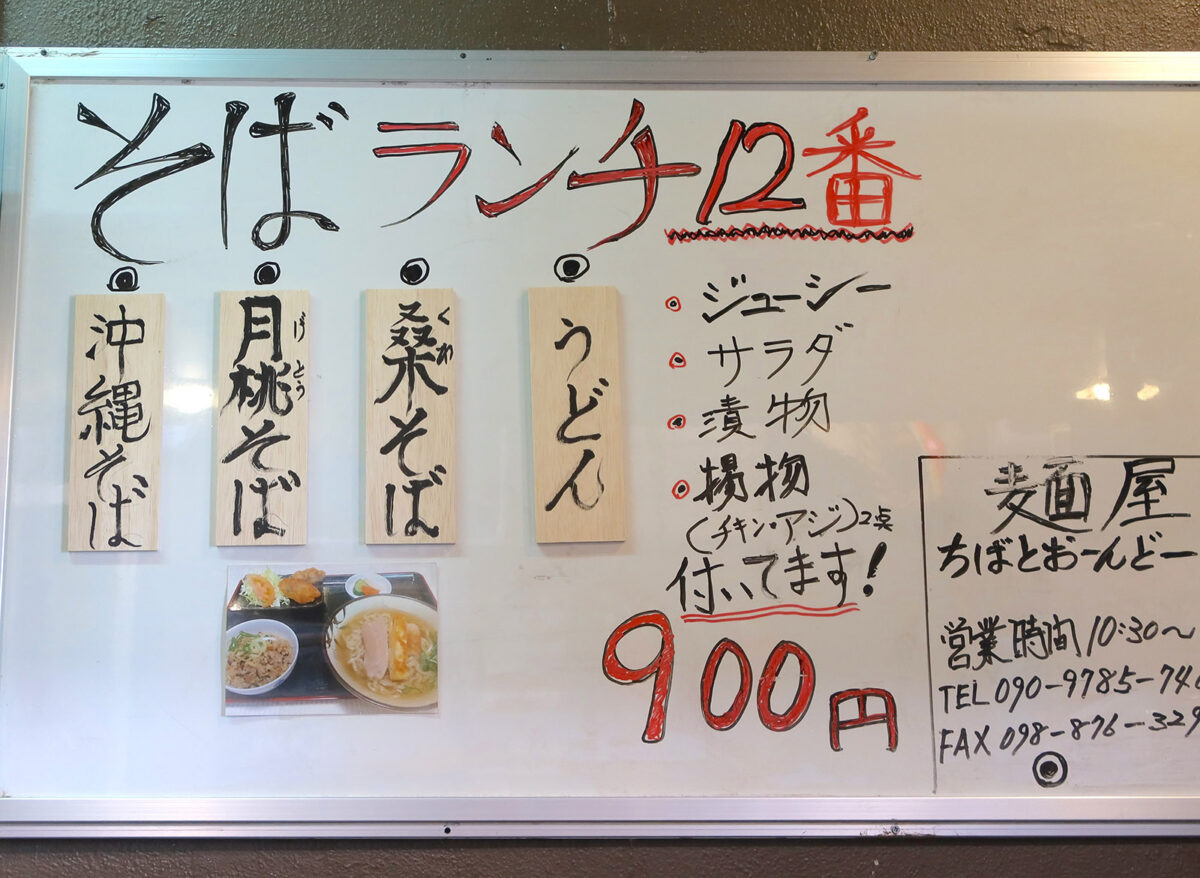 そばランチ12番
沖縄そば
月桃そば
げっとう
桑そば
くわ
うどん
ジューシー
サラダ
漬物
揚物
(チキン・アジ)2点
付いてます!
900円
麺屋
ちばとおーんどー
営業時間10:30〜
TEL 090-9785-746
FAX 098-876-329